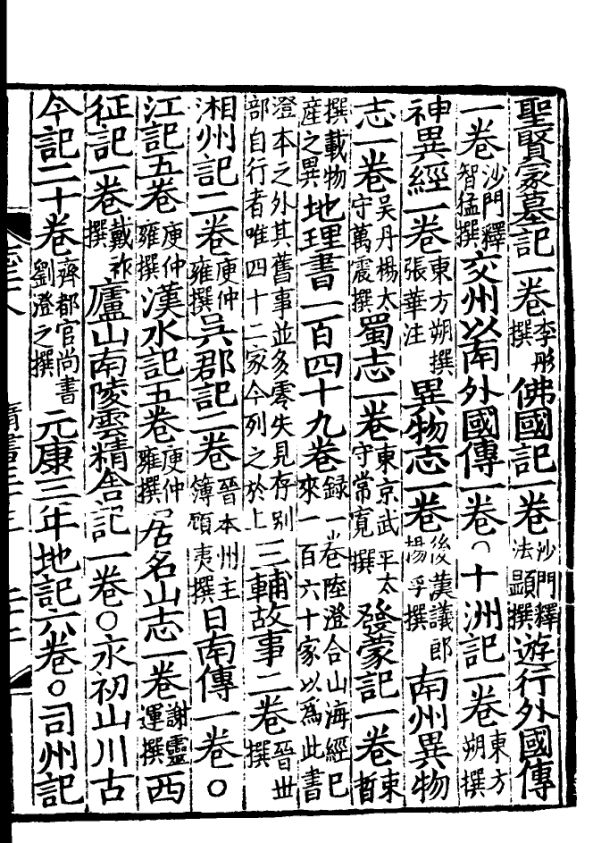 聖賢冢墓記一卷李彤撰佛國記一卷沙門釋法顯撰遊行外國傳
一卷沙門釋智猛撰交州以南外國傳一卷○十洲記一卷東方朔撰
神異經一卷東方朔撰張華注異物志一卷後漢議郎楊孚撰南州異物
志一卷吳丹楊太守萬震撰蜀志一卷東京武平太守常寬撰發蒙記一卷東晳
撰載物産之異地理書一百四十九卷録一卷陸澄合山海經已來一百六十家以爲此書
澄本之外其舊事並多零失見存别部自行者唯四十二家今列之於上三輔故事二卷晉世撰
湘州記二卷庾仲雍撰吳郡記二卷晉本州主簿顧夷撰日南傳一卷○
江記五卷庾仲雍撰漢水記五卷庾仲雍撰居名山志一卷謝靈運撰西
征記一卷戴祚撰廬山南陵雲精舍記一卷○永初山川古
今記二十卷齊都官尚書劉澄之撰元康三年地記六卷○司州記